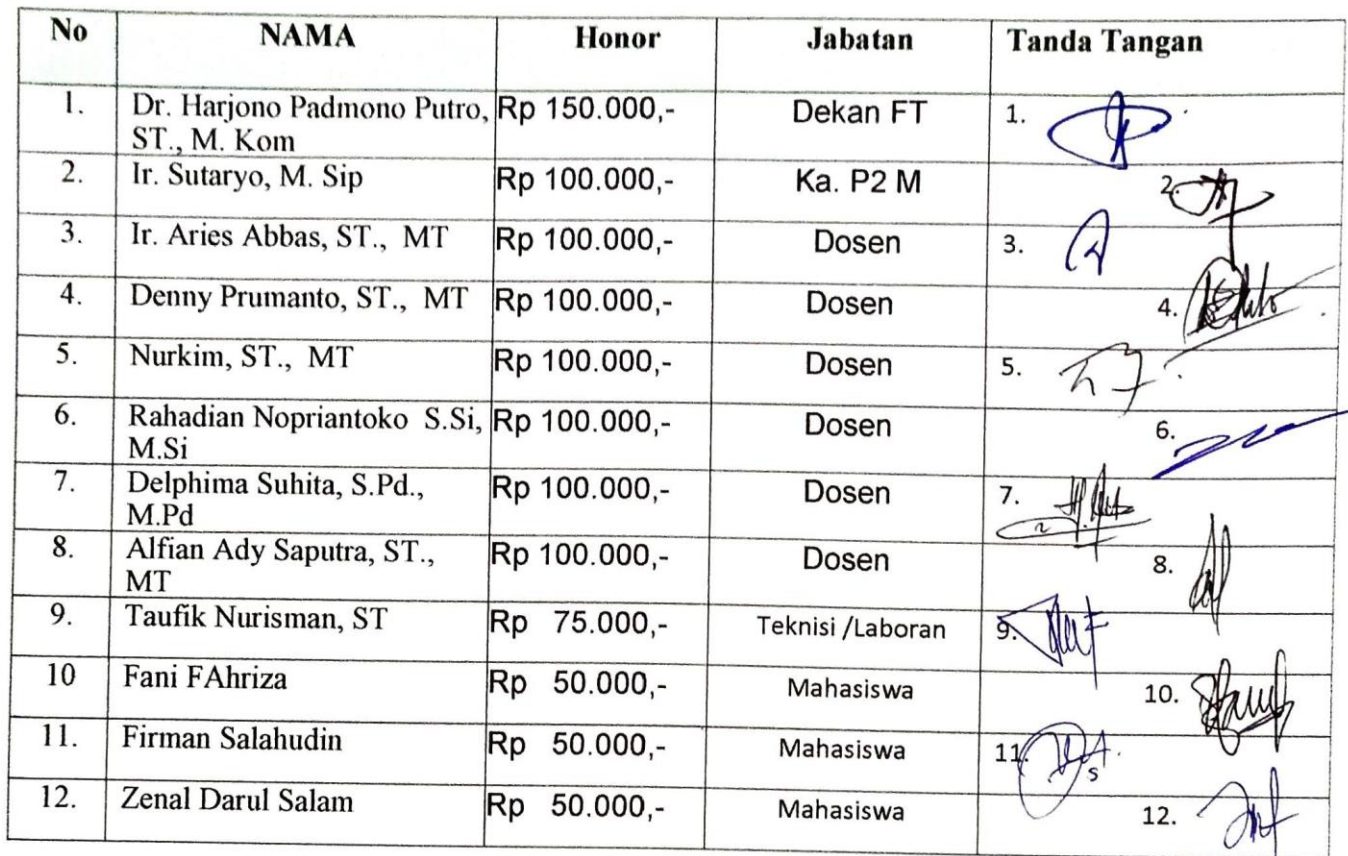 No NAMA Honor Jabatan Tanda Tangan
1. Dr. Harjono Padmono Putro, Rp 150.000,- Dekan FT 1.
ST., M. Kom
2. Ir. Sutaryo, M. Sip Rp 100.000,- Ka. P2 M 2.
3. Ir. Aries Abbas, ST., MT Rp 100.000,- Dosen 3.
4. Denny Prumanto, ST., MT Rp 100.000,- Dosen 4.
5. Nurkim, ST., MT Rp 100.000,- Dosen 5.
6. Rahadian Nopriantoko S.Si, Rp 100.000,- Dosen 6.
M.Si
7. Delphima Suhita, S.Pd., Rp 100.000,- Dosen 7.
M.Pd
8. Alfian Ady Saputra, ST., Rp 100.000,- Dosen 8.
MT
9. Taufik Nurisman, ST Rp 75.000,- Teknisi /Laboran 9.
10 Fani FAhriza Rp 50.000,- Mahasiswa 10.
11. Firman Salahudin Rp 50.000,- Mahasiswa 11.
12. Zenal Darul Salam Rp 50.000,- Mahasiswa 12.